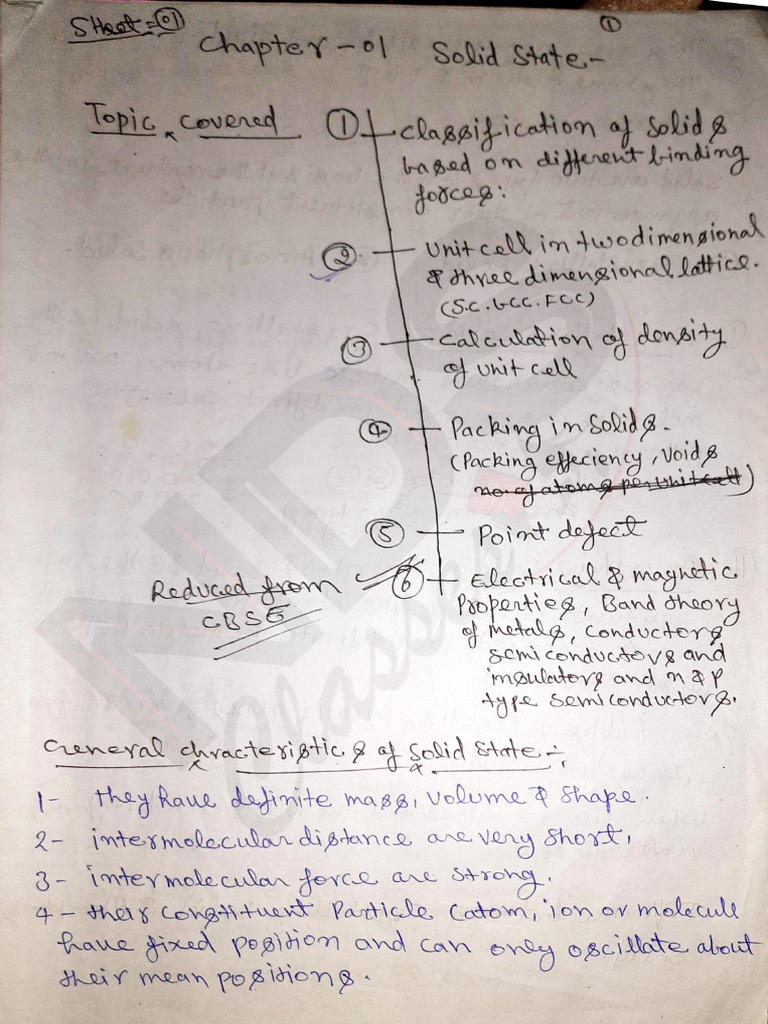 Sheet=01
1
Chapter-01 Solid State:-
Topic covered
1 Classification of Solids
based on different binding
forces:
2 Unit cell in two dimensional
& three dimensional lattice.
(S.C. bcc. FCC)
3 Calculation of density
of unit cell
4 Packing in Solids.
(Packing effeciency, Voids
no of atoms per unit cell)
5 Point defect
Reduced from
CBSE
6 Electrical & magnetic
Properties, Band theory
of metals, conductors
semiconductors and
insulators and n & p
type semiconductors.
NDS
Classes
General chracteristics of Solid State:-
1- they have definite mass, volume & shape.
2- intermolecular distance are very short,
3- intermolecular force are strong.
4- their constituent Particle (atom, ion or molecule
have fixed position and can only oscillate about
their mean positions.